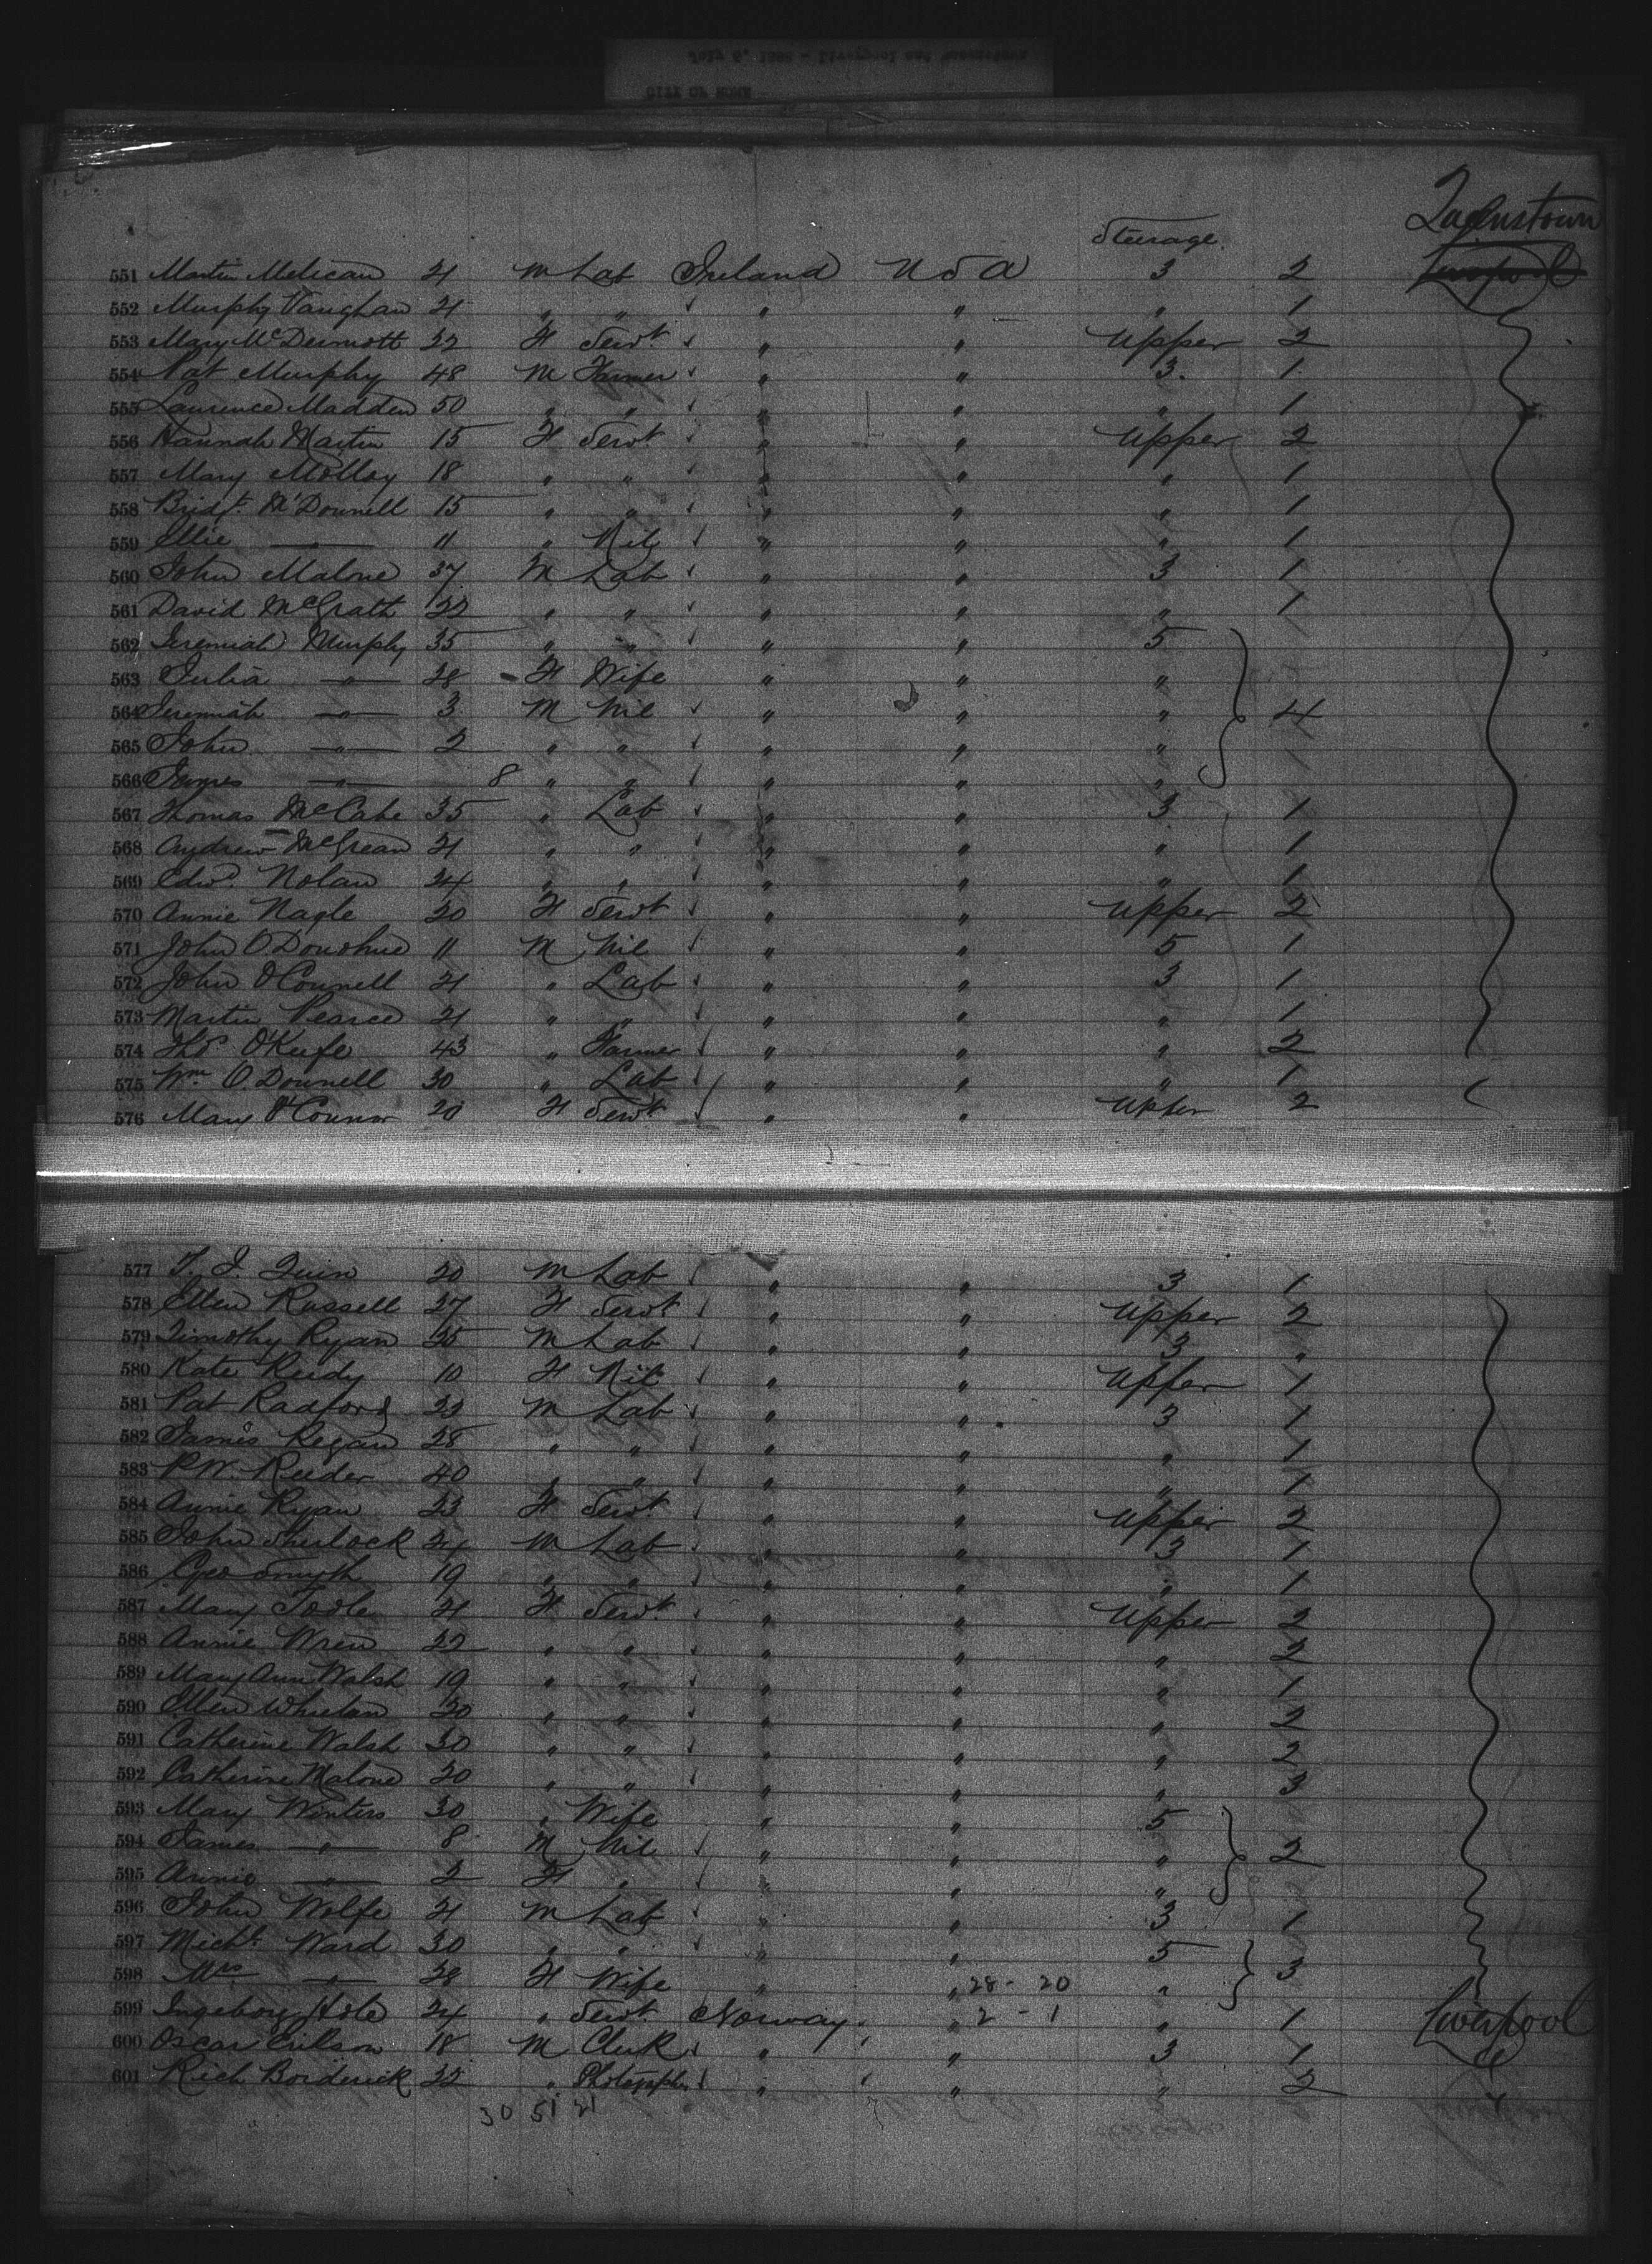 Queenstown
Steerage
551 Martin Melican 21 M Lab Ireland U S A 3 2 Liverpool
552 Murphy Vaughan 21 " " " " " 1
553 Mary McDermott 22 F Servt " " Upper 2
554 Pat Murphy 48 M Farmer " " 3 1
555 Laurence Madden 50 " " " " " 1
556 Hannah Martin 15 F Servt " " Upper 2
557 Mary Molloy 18 " " " " " 1
558 Bridgt McDonnell 15 " " " " " 1
559 Ellie — 11 " Nil " " " 1
560 John Malone 37 M Lab " " 3 1
561 David McGrath 22 " " " " " 1
562 Jeremiah Murphy 35 " " " " 5
563 Julia " 28 F Wife " " "
564 Jeremiah " 3 M Nil " " " 4
565 John " 2 " " " " "
566 James " 8 " " " " "
567 Thomas McCabe 35 " Lab " " 3 1
568 Andrew McGrean 21 " " " " " 1
569 Edwd Nolan 24 " " " " " 1
570 Annie Nagle 20 F Servt " " Upper 2
571 John O'Donohue 11 M Nil " " 5 1
572 John O'Connell 21 " Lab " " 3 1
573 Martin Pearce 21 " " " " " 1
574 Thos O'Keefe 43 " Farmer " " " 2
575 Wm O'Donnell 30 " Lab " " " 1
576 Mary O'Connor 20 F Servt " " Upper 2
577 T. J. Quin 20 M Lab " " 3 1
578 Ellen Russell 27 F Servt " " Upper 2
579 Timothy Ryan 25 M Lab " " 3 "
580 Kate Reidy 10 F Nil " " Upper 1
581 Pat Radford 22 M Lab " " 3 1
582 James Regan 28 " " " " " 1
583 P.W. Reeder 40 " " " " " 1
584 Annie Ryan 23 F Servt " " Upper 2
585 John Sherlock 24 M Lab " " 3 1
586 Geo Smyth 19 " " " " " 1
587 Mary Toole 21 F Servt " " Upper 2
588 Annie Wren 22 " " " " " 2
589 Mary Ann Walsh 19 " " " " " 1
590 Ellen Whelan 20 " " " " " 2
591 Catherine Walsh 30 " " " " " 2
592 Catherine Malone 20 " " " " " 3
593 Mary Winters 30 " Wife " " 5
594 James " 8 M Nil " " " 2
595 Annie " 2 F " " " "
596 John Wolfe 21 M Lab " " 3 1
597 Michl Ward 30 " " " " 5 3
598 Mrs " 28 F Wife " " 28 - 20 "
599 Ingeborg Hole 24 " Servt Norway " 2 - 1 " 1 Liverpool
600 Oscar Erikson 18 M Clerk " " 3 1
601 Rich Borderick 22 " " " " 2
30 51 21